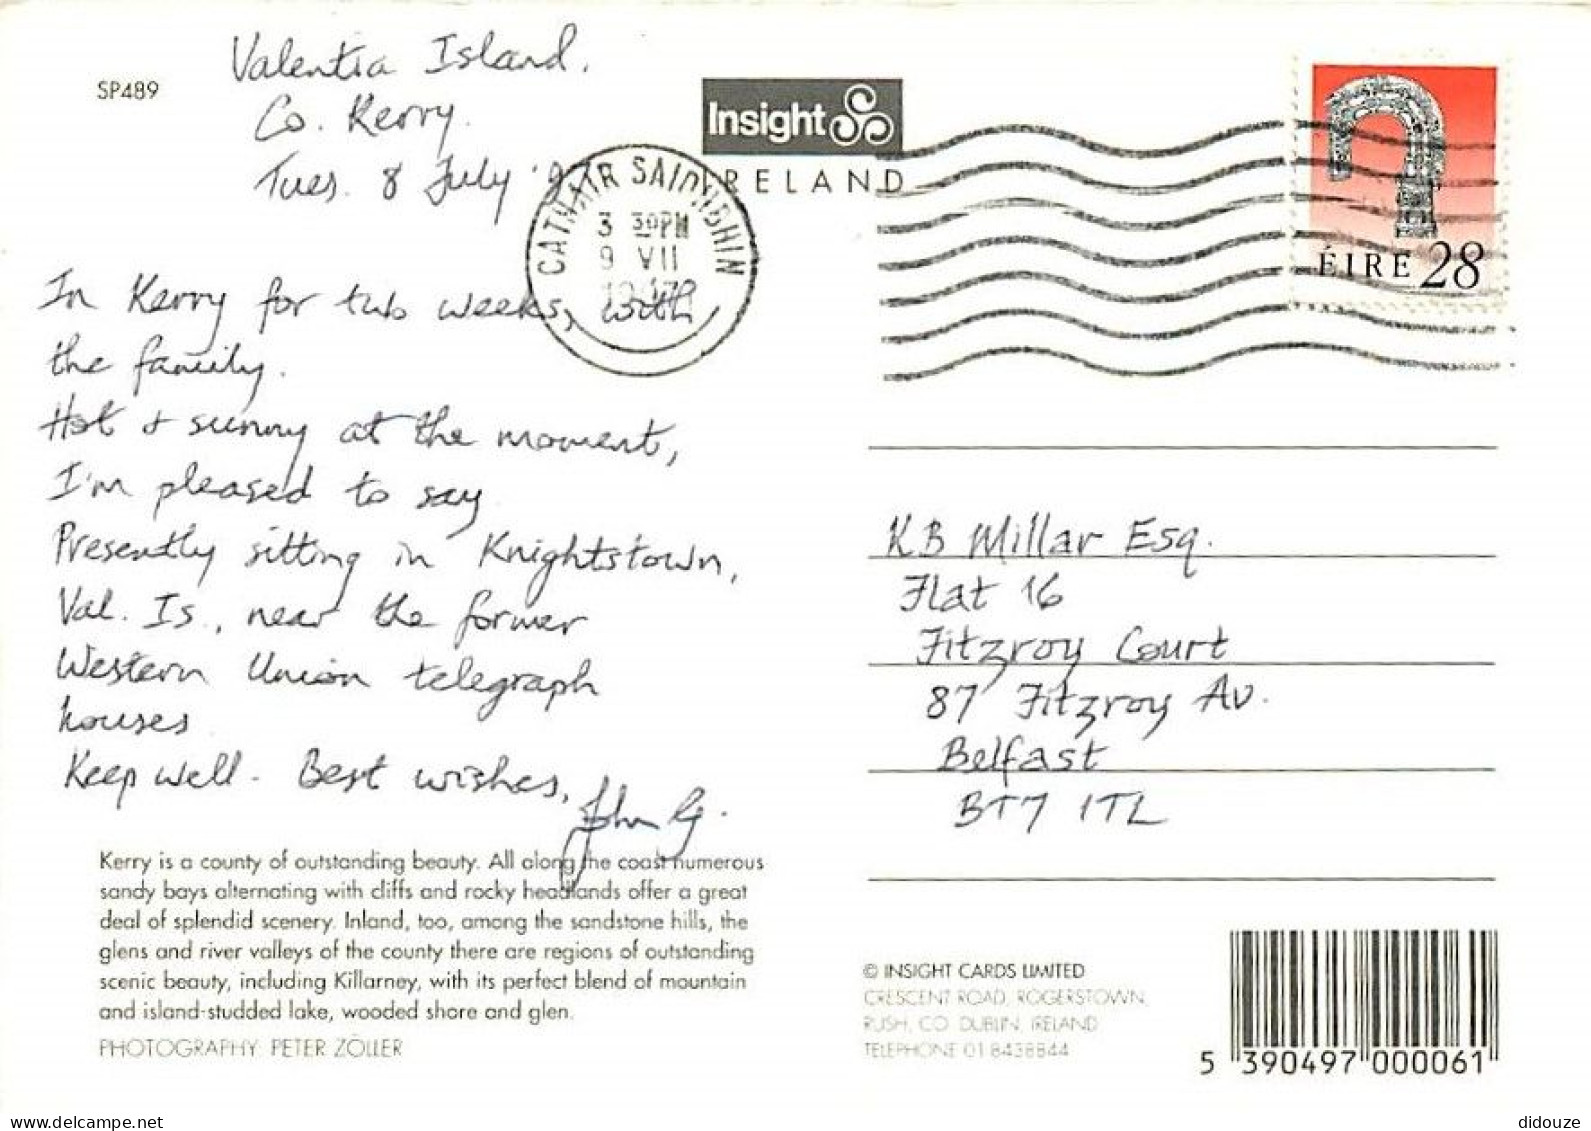 SP489
Valentia Island.
Co. Kerry.
Tues. 8 July '97
Insight
IRELAND
CATHAIR SAIDHBHIN
3 30PM
9 VII
ÉIRE 28
In Kerry for two weeks, with
the family.
Hot & sunny at the moment,
I'm pleased to say
Presently sitting in Knightstown,
Val. Is., near the former
Western Union telegraph
houses
Keep well. Best wishes,
John G.
KB Millar Esq.
Flat 16
Fitzroy Court
87 Fitzroy Av.
Belfast
BT7 1TL
Kerry is a county of outstanding beauty. All along the coast numerous
sandy bays alternating with cliffs and rocky headlands offer a great
deal of splendid scenery. Inland, too, among the sandstone hills, the
glens and river valleys of the county there are regions of outstanding
scenic beauty, including Killarney, with its perfect blend of mountain
and island-studded lake, wooded shore and glen.
PHOTOGRAPHY: PETER ZÖLLER
© INSIGHT CARDS LIMITED
CRESCENT ROAD, ROGERSTOWN,
RUSH, CO. DUBLIN, IRELAND
TELEPHONE 01 8438844
5 390497 000061
www.delcampe.net
didouze